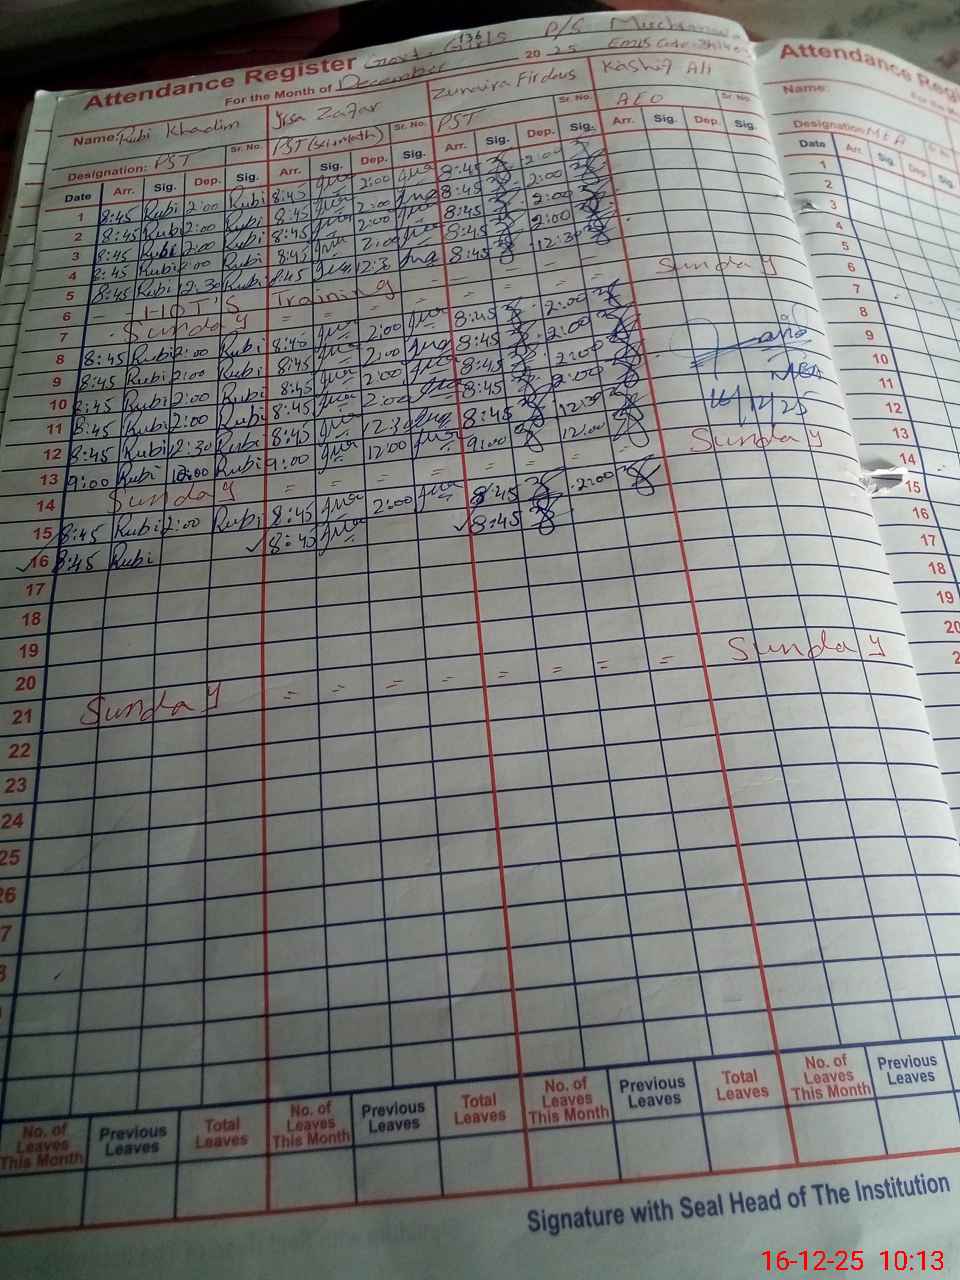 Attendance Register Govt. Girls P/S
For the Month of December 2025
Name: Rubi Khadim Irsa Zafar Zunaira Firdous Kashif Ali
Designation: PST Sr. No. PST (Sci-Math) Sr. No. PST Sr. No. AEO Sr. No.
Date Arr. Sig. Dep. Sig. Arr. Sig. Dep. Sig. Arr. Sig. Dep. Sig. Arr. Sig. Dep. Sig.
1 8:45 Rubi 2:00 Rubi 8:45 2:00 8:45 2:00
2 8:45 Rubi 2:00 Rubi 8:45 2:00 8:45 2:00
3 8:45 Rubi 2:00 Rubi 8:45 2:00 8:45 2:00
4 8:45 Rubi 2:00 Rubi 8:45 2:00 8:45 2:00
5 8:45 Rubi 12:30 Rubi 8:45 12:30 8:45 12:30
6 HOT'S Training = = = = =
7 Sunday = = = = = = = Sunday
8 8:45 Rubi 2:00 Rubi 8:45 2:00 8:45 2:00
9 8:45 Rubi 2:00 Rubi 8:45 2:00 8:45 2:00
10 8:45 Rubi 2:00 Rubi 8:45 2:00 8:45 2:00
11 8:45 Rubi 2:00 Rubi 8:45 2:00 8:45 2:00
12 8:45 Rubi 12:30 Rubi 8:45 12:30 8:45 12:30
13 9:00 Rubi 12:00 Rubi 9:00 12:00 9:00 12:00
MEA
16/12/25
14 Sunday = = = = = = = Sunday
15 8:45 Rubi 2:00 Rubi 8:45 2:00 8:45 2:00
16 8:45 Rubi 8:45 8:45
17
18
19
20
21 Sunday = = = = = = = Sunday
22
23
24
25
26
No. of Leaves This Month Previous Leaves Total Leaves No. of Leaves This Month Previous Leaves Total Leaves No. of Leaves This Month Previous Leaves Total Leaves No. of Leaves This Month Previous Leaves
Signature with Seal Head of The Institution
Attendance
Name:
Designation: MEA
Date Arr. Sig Dep Sig.
1
2
3
4
5
6
7
8
9
10
11
12
13
14
15
16
17
18
19
20
16-12-25 10:13